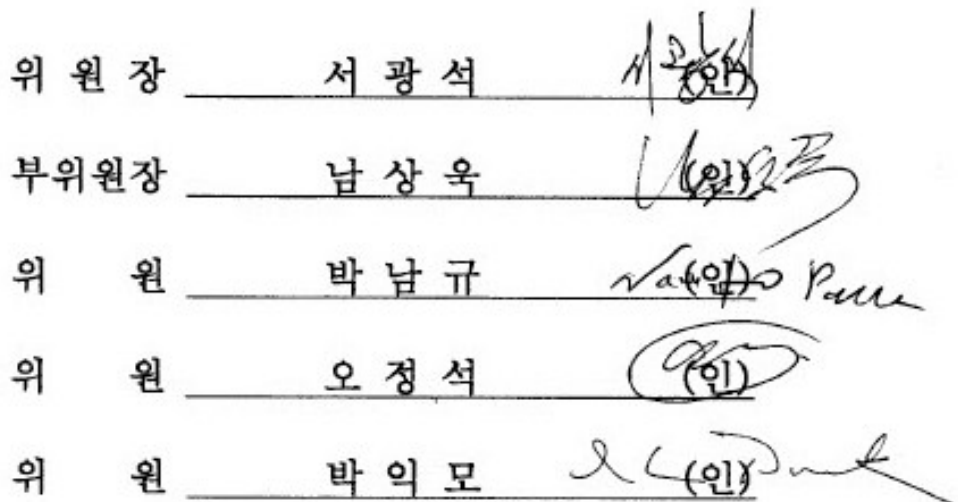 위 원 장 서 광 석 (인)
부위원장 남 상 욱 (인)
위 원 박 남 규 (인)
위 원 오 정 석 (인)
위 원 박 익 모 (인)